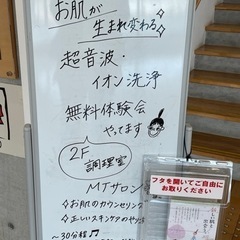 お肌が
生まれ変わる
超音波・
イオン洗浄
無料体験会
やってます
2F
調理室
MTサロン
お肌のカウンセリング
正しいスキンケアのやり方
～30分程♫
フタを開いてご自由に
お取りください